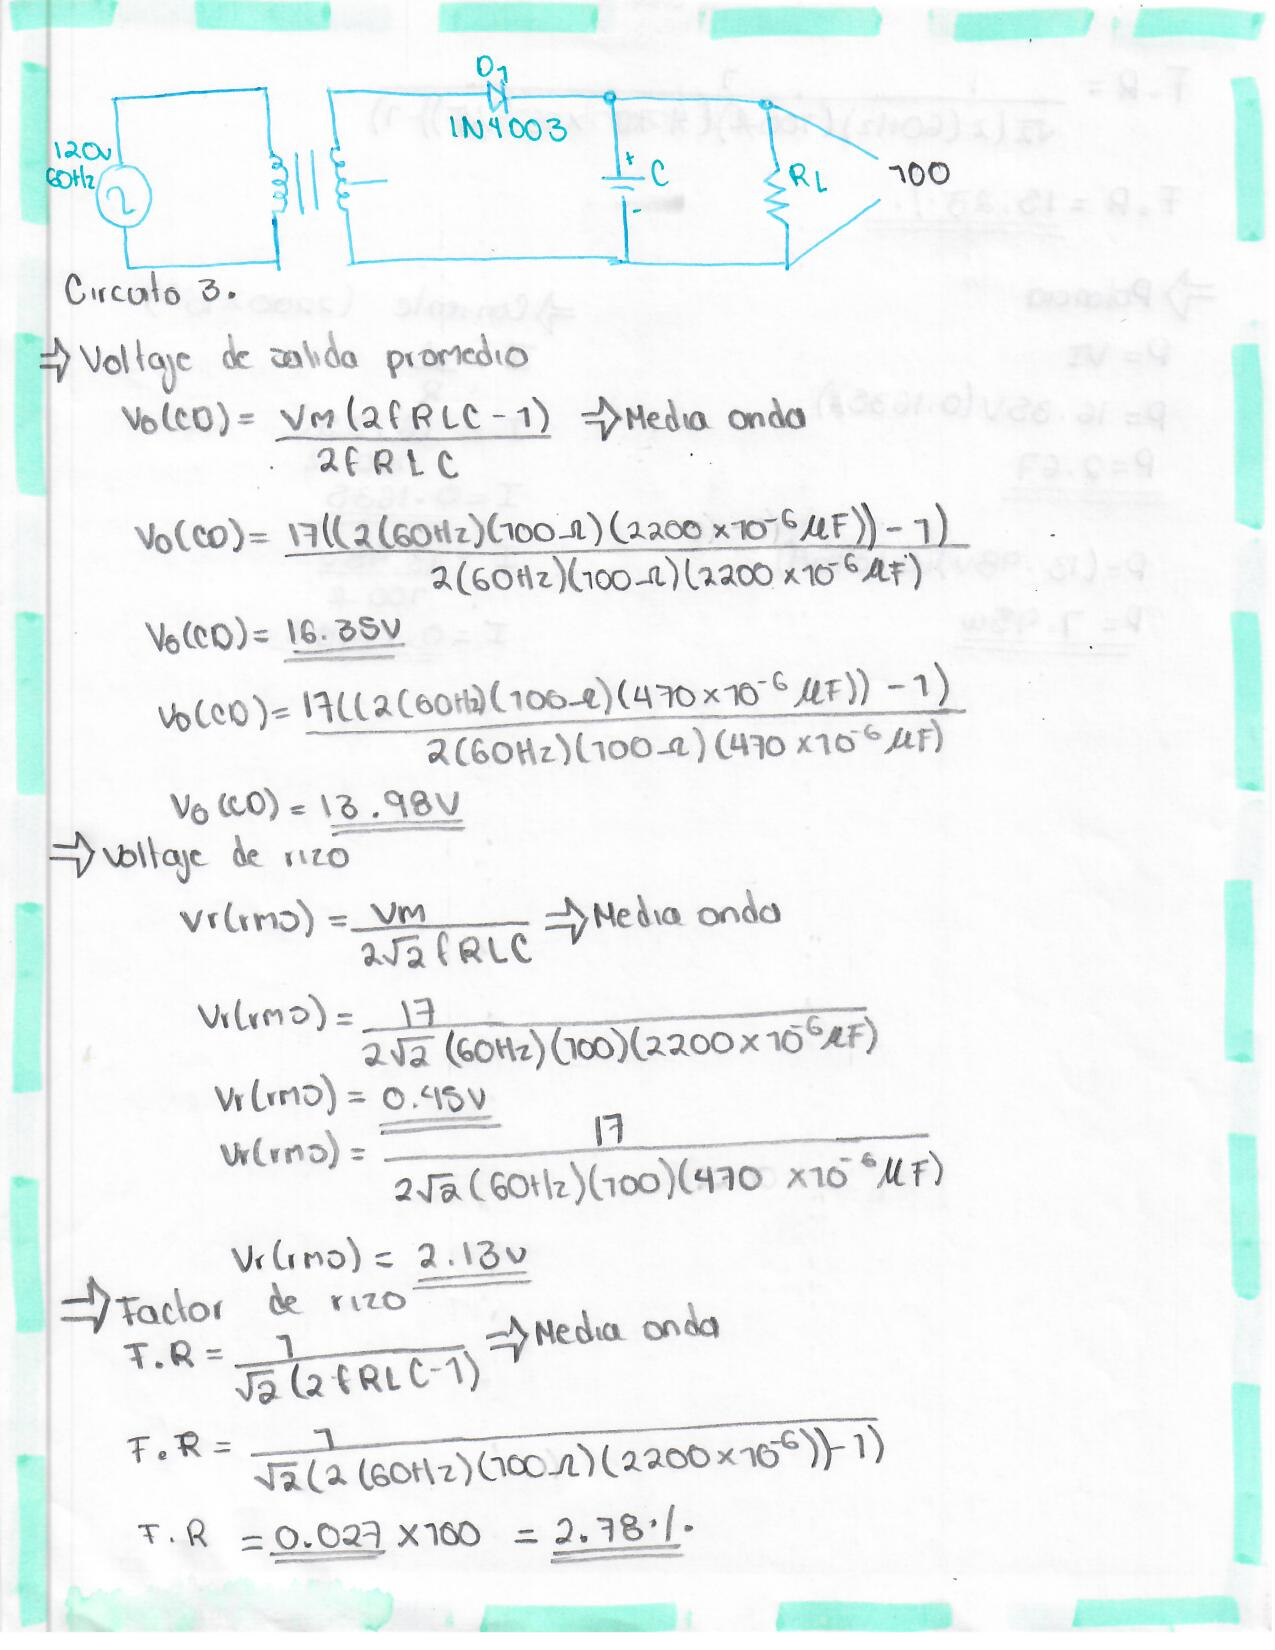 D1
1N4003
120v
60Hz
+
C
-
RL
100
Circuito 3.
⇒ Voltaje de salida promedio
Vo(CD) = Vm(2fRLC-1) / 2fRLC ⇒ Media onda
Vo(CD) = 17((2(60Hz)(100Ω)(2200x10⁻⁶ μF))-1) / 2(60Hz)(100Ω)(2200x10⁻⁶ μF)
Vo(CD) = 16.35V
Vo(CD) = 17((2(60Hz)(100Ω)(470x10⁻⁶ μF))-1) / 2(60Hz)(100Ω)(470x10⁻⁶ μF)
Vo(CD) = 13.98V
⇒ Voltaje de rizo
Vr(rms) = Vm / 2√2 fRLC ⇒ Media onda
Vr(rms) = 17 / 2√2 (60Hz)(100)(2200x10⁻⁶ μF)
Vr(rms) = 0.45v
Vr(rms) = 17 / 2√2 (60Hz)(100)(470x10⁻⁶ μF)
Vr(rms) = 2.13v
⇒ Factor de rizo
F.R = 1 / √2 (2fRLC-1) ⇒ Media onda
F.R = 1 / √2(2(60Hz)(100Ω)(2200x10⁻⁶))-1)
F.R = 0.027 x100 = 2.78%.